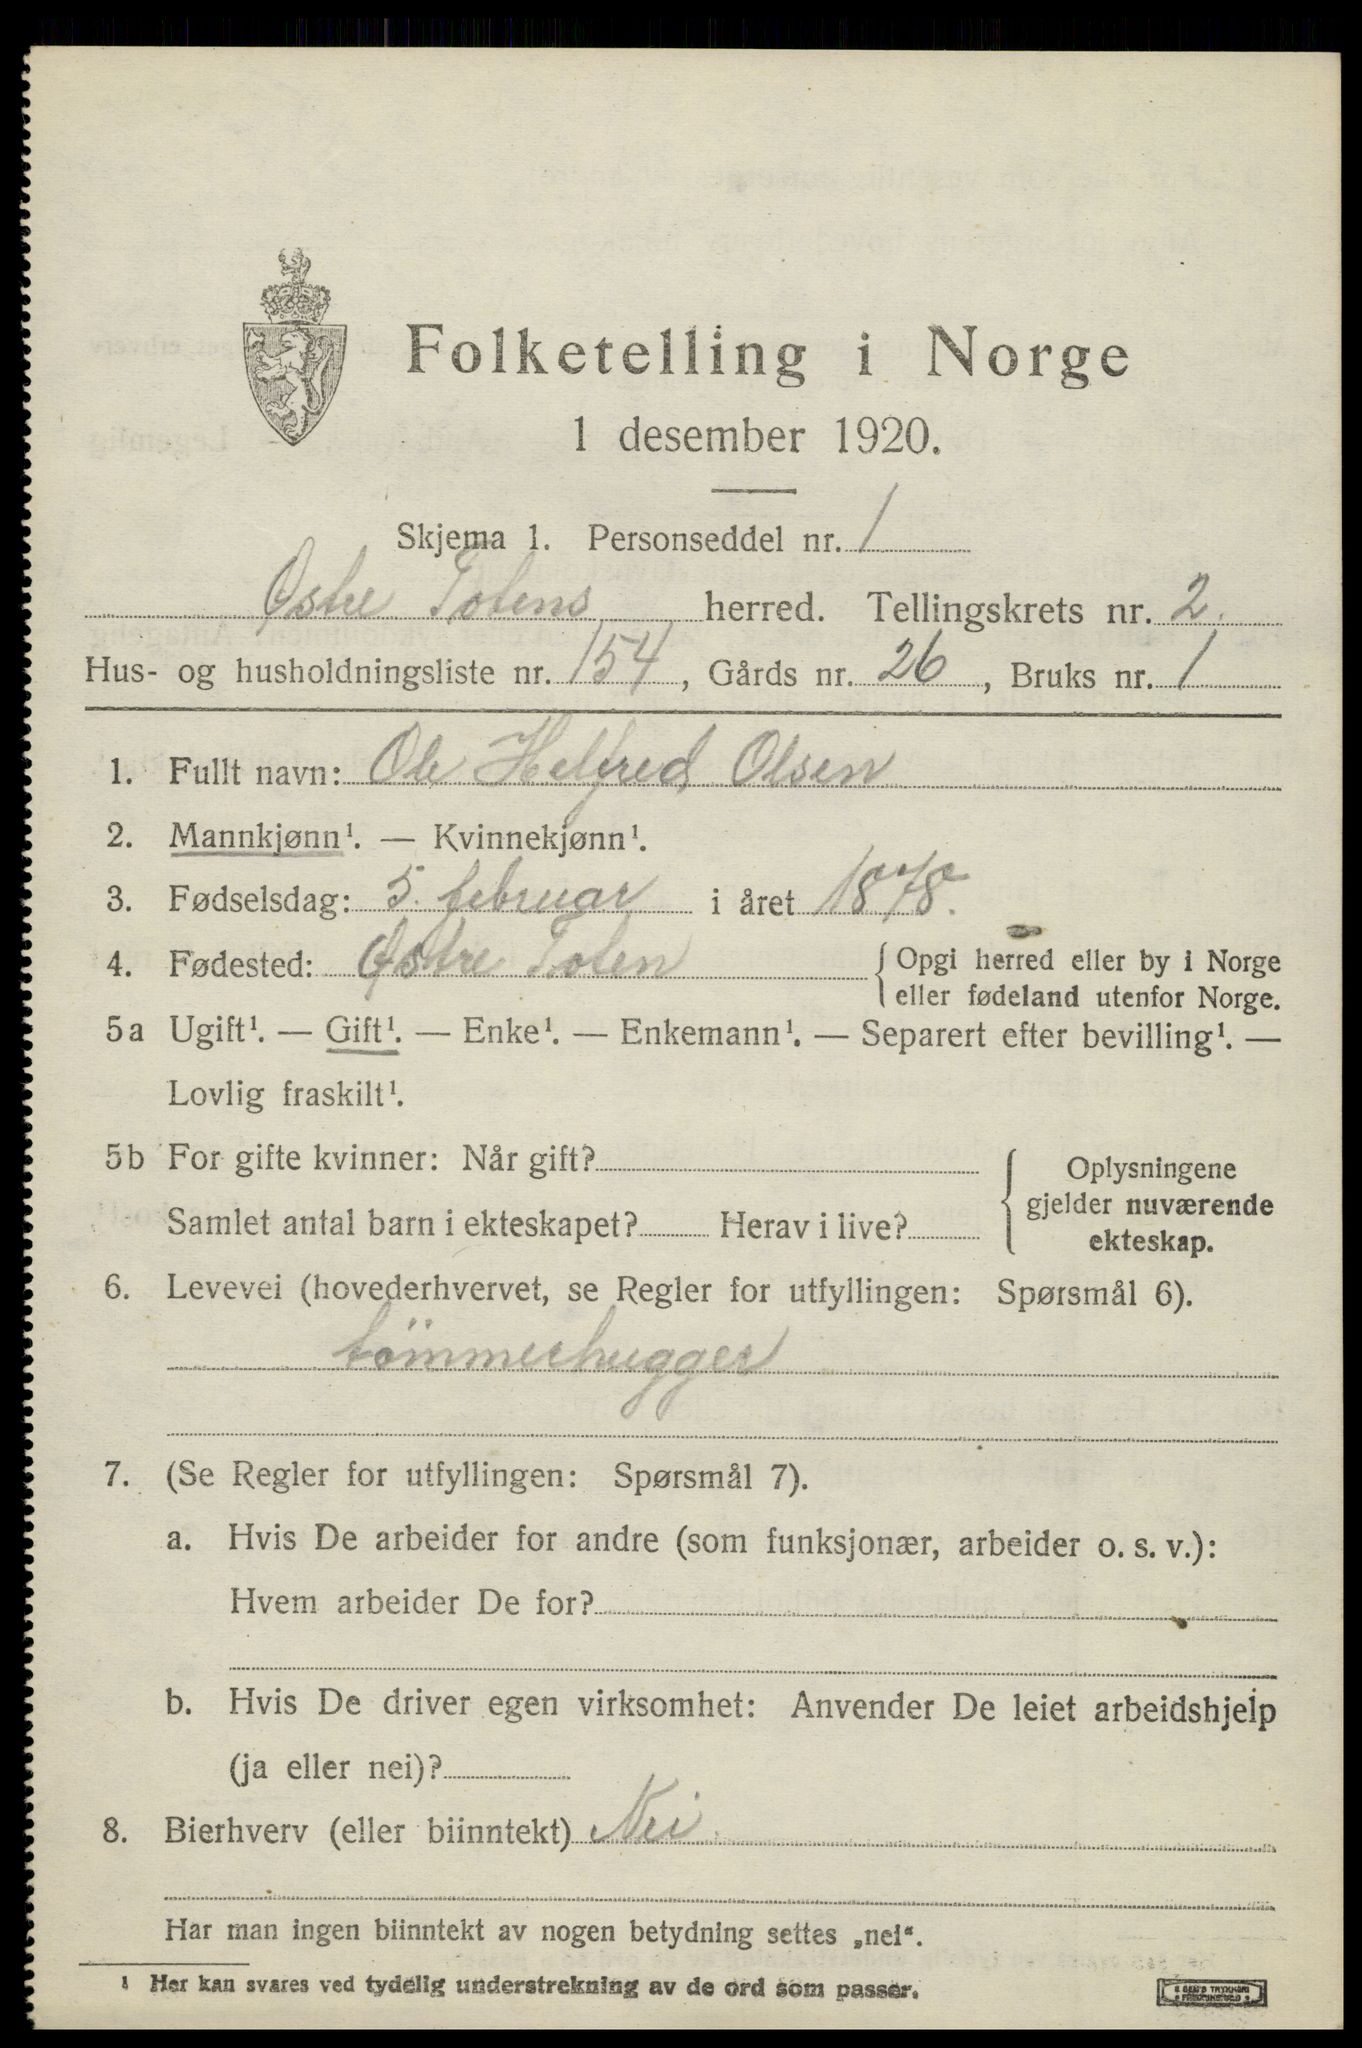 Folketelling i Norge
1 desember 1920.
Skjema 1. Personseddel nr. 1
Østre Totens herred. Tellingskrets nr. 2.
Hus- og husholdningsliste nr. 154, Gårds nr. 26, Bruks nr. 1
1. Fullt navn: Ole Helfred Olsen
2. Mannkjønn¹. — Kvinnekjønn¹.
3. Fødselsdag: 5. februar i året 1878.
4. Fødested: Østre Toten { Opgi herred eller by i Norge
eller fødeland utenfor Norge.
5a Ugift¹. — Gift¹. — Enke¹. — Enkemann¹. — Separert efter bevilling¹. —
Lovlig fraskilt¹.
5b For gifte kvinner: Når gift?
Samlet antal barn i ekteskapet? Herav i live?
{ Oplysningene
gjelder nuværende
ekteskap.
6. Levevei (hovederhvervet, se Regler for utfyllingen: Spørsmål 6).
tømmerhugger
7. (Se Regler for utfyllingen: Spørsmål 7).
a. Hvis De arbeider for andre (som funksjonær, arbeider o. s. v.):
Hvem arbeider De for?
b. Hvis De driver egen virksomhet: Anvender De leiet arbeidshjelp
(ja eller nei)?
8. Bierhverv (eller biinntekt) Nei.
Har man ingen biinntekt av nogen betydning settes „nei“.
¹ Her kan svares ved tydelig understrekning av de ord som passer.